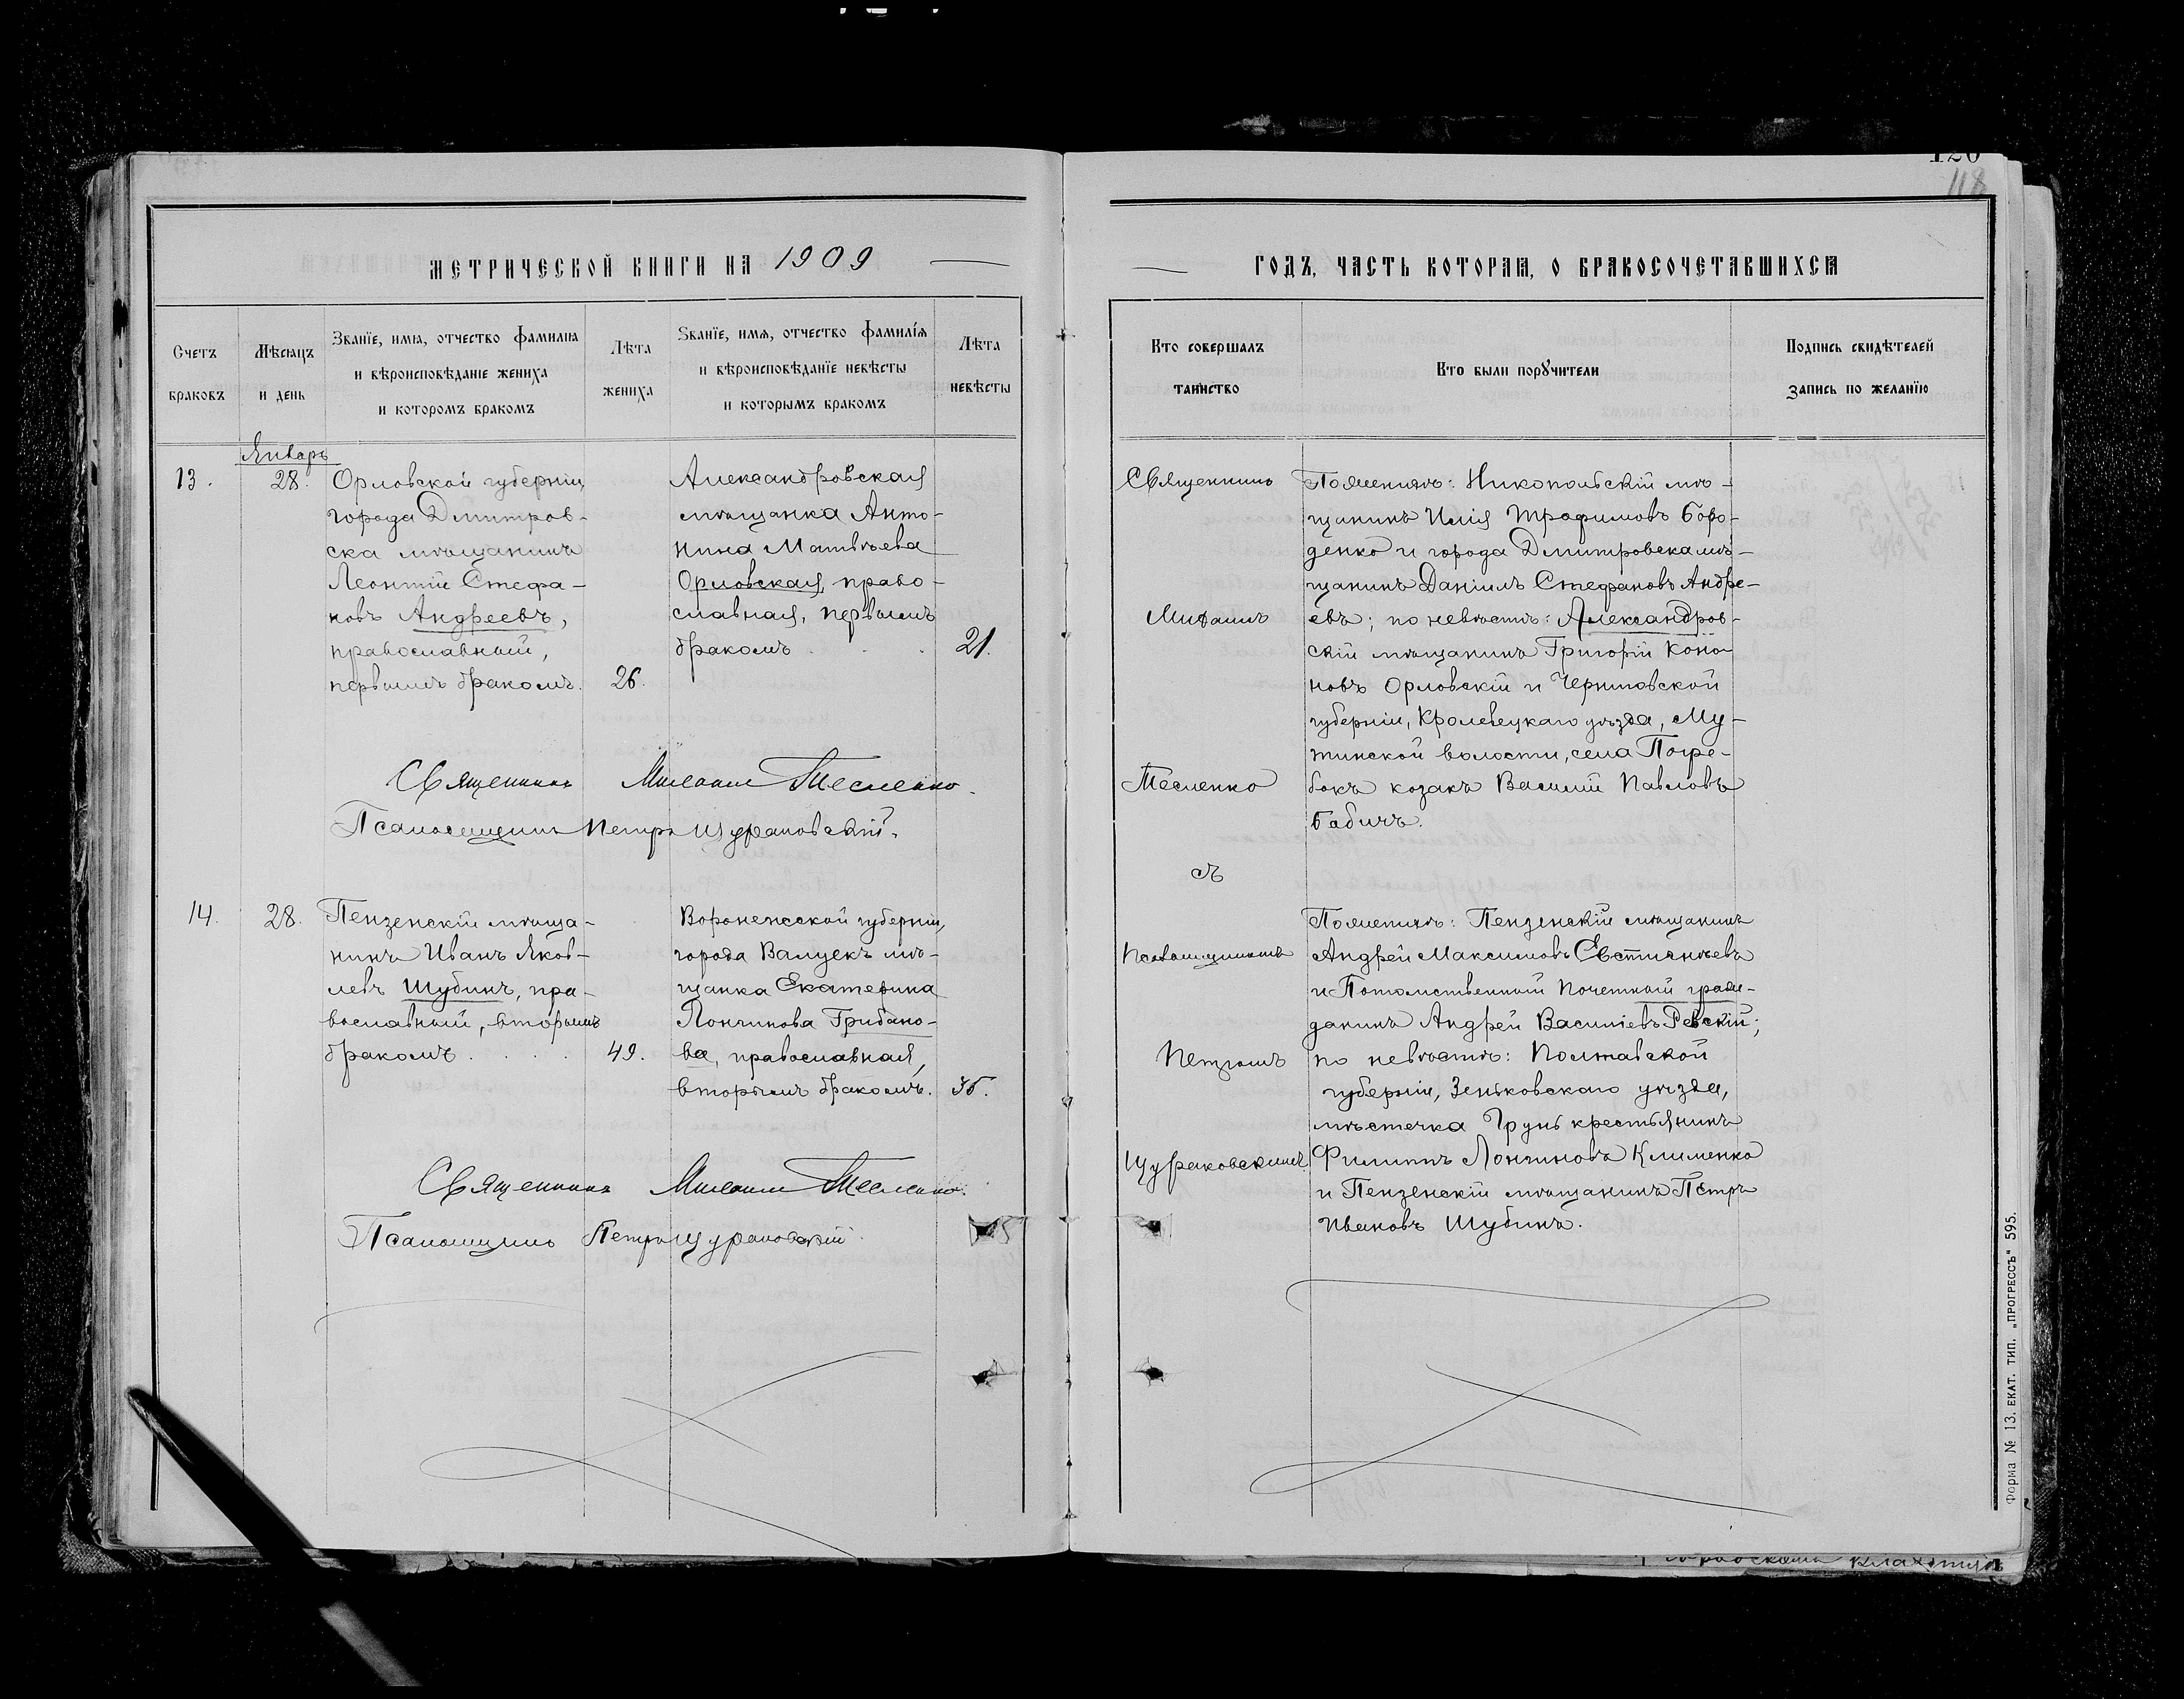 120
118
МЕТРИЧЕСКОЙ КНИГИ НА 1909
Счетъ браковъ
Мѣсяцъ и день
Званїе, имя, отчество фамилия
и вѣроисповѣданїе жениха
и которомъ бракомъ
Лѣта жениха
Званїе, имя, отчество фамилїя
и вѣроисповѣданїе невѣсты
и которымъ бракомъ
Лѣта невѣсты
Январь
13.
28.
Орловской губерніи,
города Дмитров-
ска мѣщанинъ
Леонтій Стефа-
новъ Андреевъ,
православный,
первымъ бракомъ.
26.
Александровская
мѣщанка Анто-
нина Матвѣева
Орловская, право-
славная, первымъ
бракомъ . . .
21.
Священникъ Михаилъ Тесленко.
Псаломщикъ Петръ Щураковскій.
14.
28.
Пензенскій мѣща-
нинъ Иванъ Яков-
левъ Шубинъ, пра-
вославный, вторымъ
бракомъ . . . .
49.
Воронежской губерніи,
города Валуекъ мѣ-
щанка Екатерина
Лонгинова Грибано-
ва, православная,
вторымъ бракомъ.
36.
Священникъ Михаилъ Тесленко.
Псаломщикъ Петръ Щураковскій
ГОДЪ, ЧАСТЬ КОТОРАЯ, О БРАКОСОЧЕТАВШИХСЯ
Кто совершалъ таинство
Кто были порꙋчители
Подпись свидѣтелей запись по желанїю
Священникъ
Михаилъ
Тесленко
съ
Псаломщикомъ
Петромъ
Щураковскимъ
По женихѣ: Никопольскій мѣ-
щанинъ Илія Трофимовъ Боро-
денко и города Дмитровска мѣ-
щанинъ Даніилъ Стефановъ Андре-
евъ; по невѣстѣ: Александров-
скій мѣщанинъ Григорій Коно-
новъ Орловскій и Черниговской
губерніи, Кролевецкаго уѣзда, Му-
тинской волости, села Погре-
бокъ козакъ Василій Павловъ
Бабичъ.
По женихѣ: Пензенскій мѣщанинъ
Андрей Максимовъ Евстигнѣевъ
и Потомственный Почетный граж-
данинъ Андрей Василіевъ Ревскій;
по невѣстѣ: Полтавской
губерніи, Зеньковскаго уѣзда,
мѣстечка Грунь крестьянинъ
Филиппъ Лонгиновъ Клименко
и Пензенскій мѣщанинъ Петръ
Ивановъ Шубинъ.
Форма № 13. ЕКАТ. ТИП. „ПРОГРЕССЪ" 595.